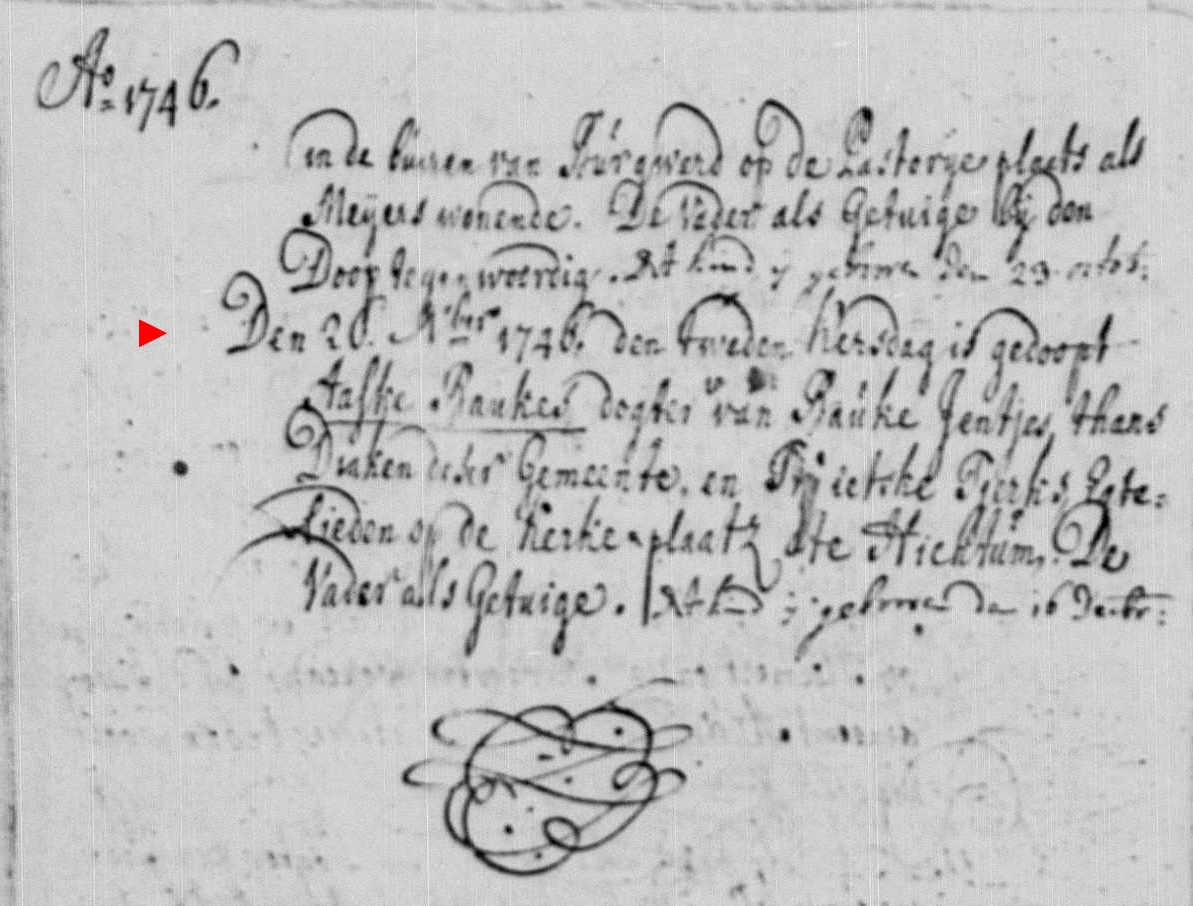 Aº 1746.
in de buiren van Tsúrqwerd op de Pastorye plaets als
Meÿers wonende. De Vader als Getuige bij den
Doop tegenwoordig. Het kind is geboren den 23 octob:
Den 26. Xber 1746, den tweden kersdag is gedoopt
Aafke Baukes dogter van Baúke Jentjes thans
Diaken deser Gemeente, en Trijetske Tjerks Egte=
lieden op de kerke plaatz te Hichtum. De
Vader als Getuige. Het kind is geboren den 16 Decbr: